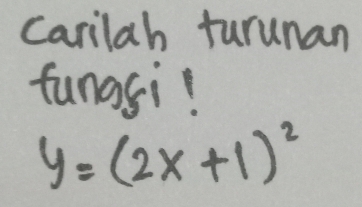 Carilah turunan
fungsi!
y = (2x + 1)²